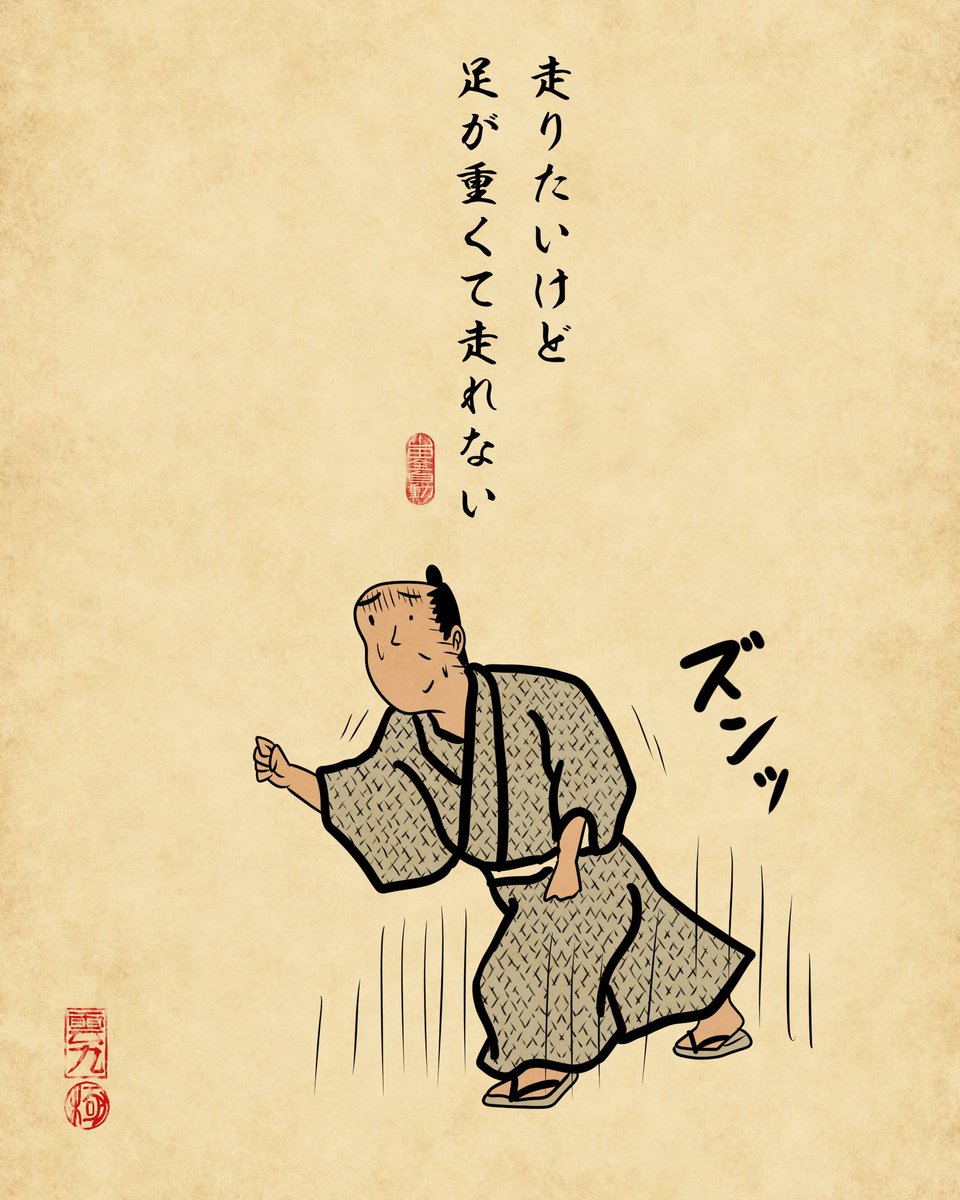 走りたいけど
足が重くて走れない
ズンッ